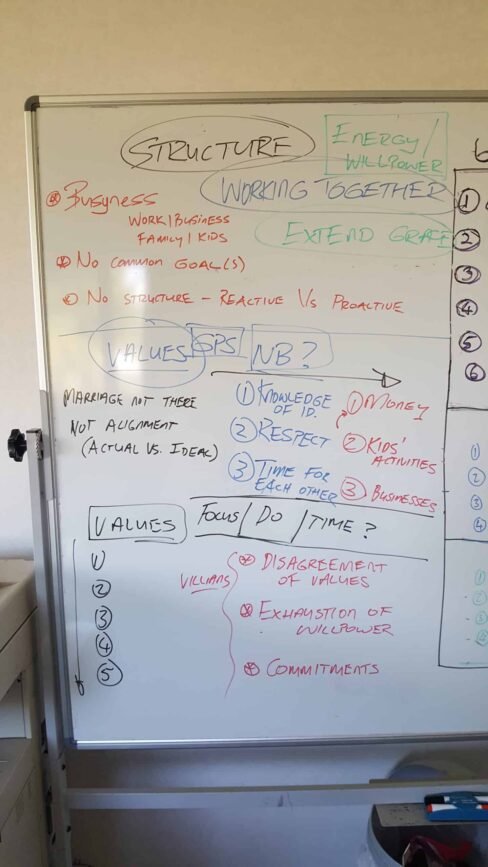 STRUCTURE
ENERGY/
WILLPOWER
WORKING TOGETHER
EXTEND GRACE
BUSYNESS
WORK/BUSINESS
FAMILY/KIDS
NO COMMON GOAL(S)
NO STRUCTURE - REACTIVE VS PROACTIVE
VALUES GPS NB?
MARRIAGE NOT THERE
NOT ALIGNMENT
(ACTUAL VS. IDEAL)
① KNOWLEDGE
OF ID.
② RESPECT
③ TIME FOR
EACH OTHER
① MONEY
② KIDS'
ACTIVITIES
③ BUSINESSES
VALUES FOCUS/ DO /TIME?
①
②
③
④
⑤
VILLIANS
DISAGREEMENT
OF VALUES
EXHAUSTION OF
WILLPOWER
COMMITMENTS
①
②
③
④
⑤
⑥
①
②
③
④
①
②
③
④